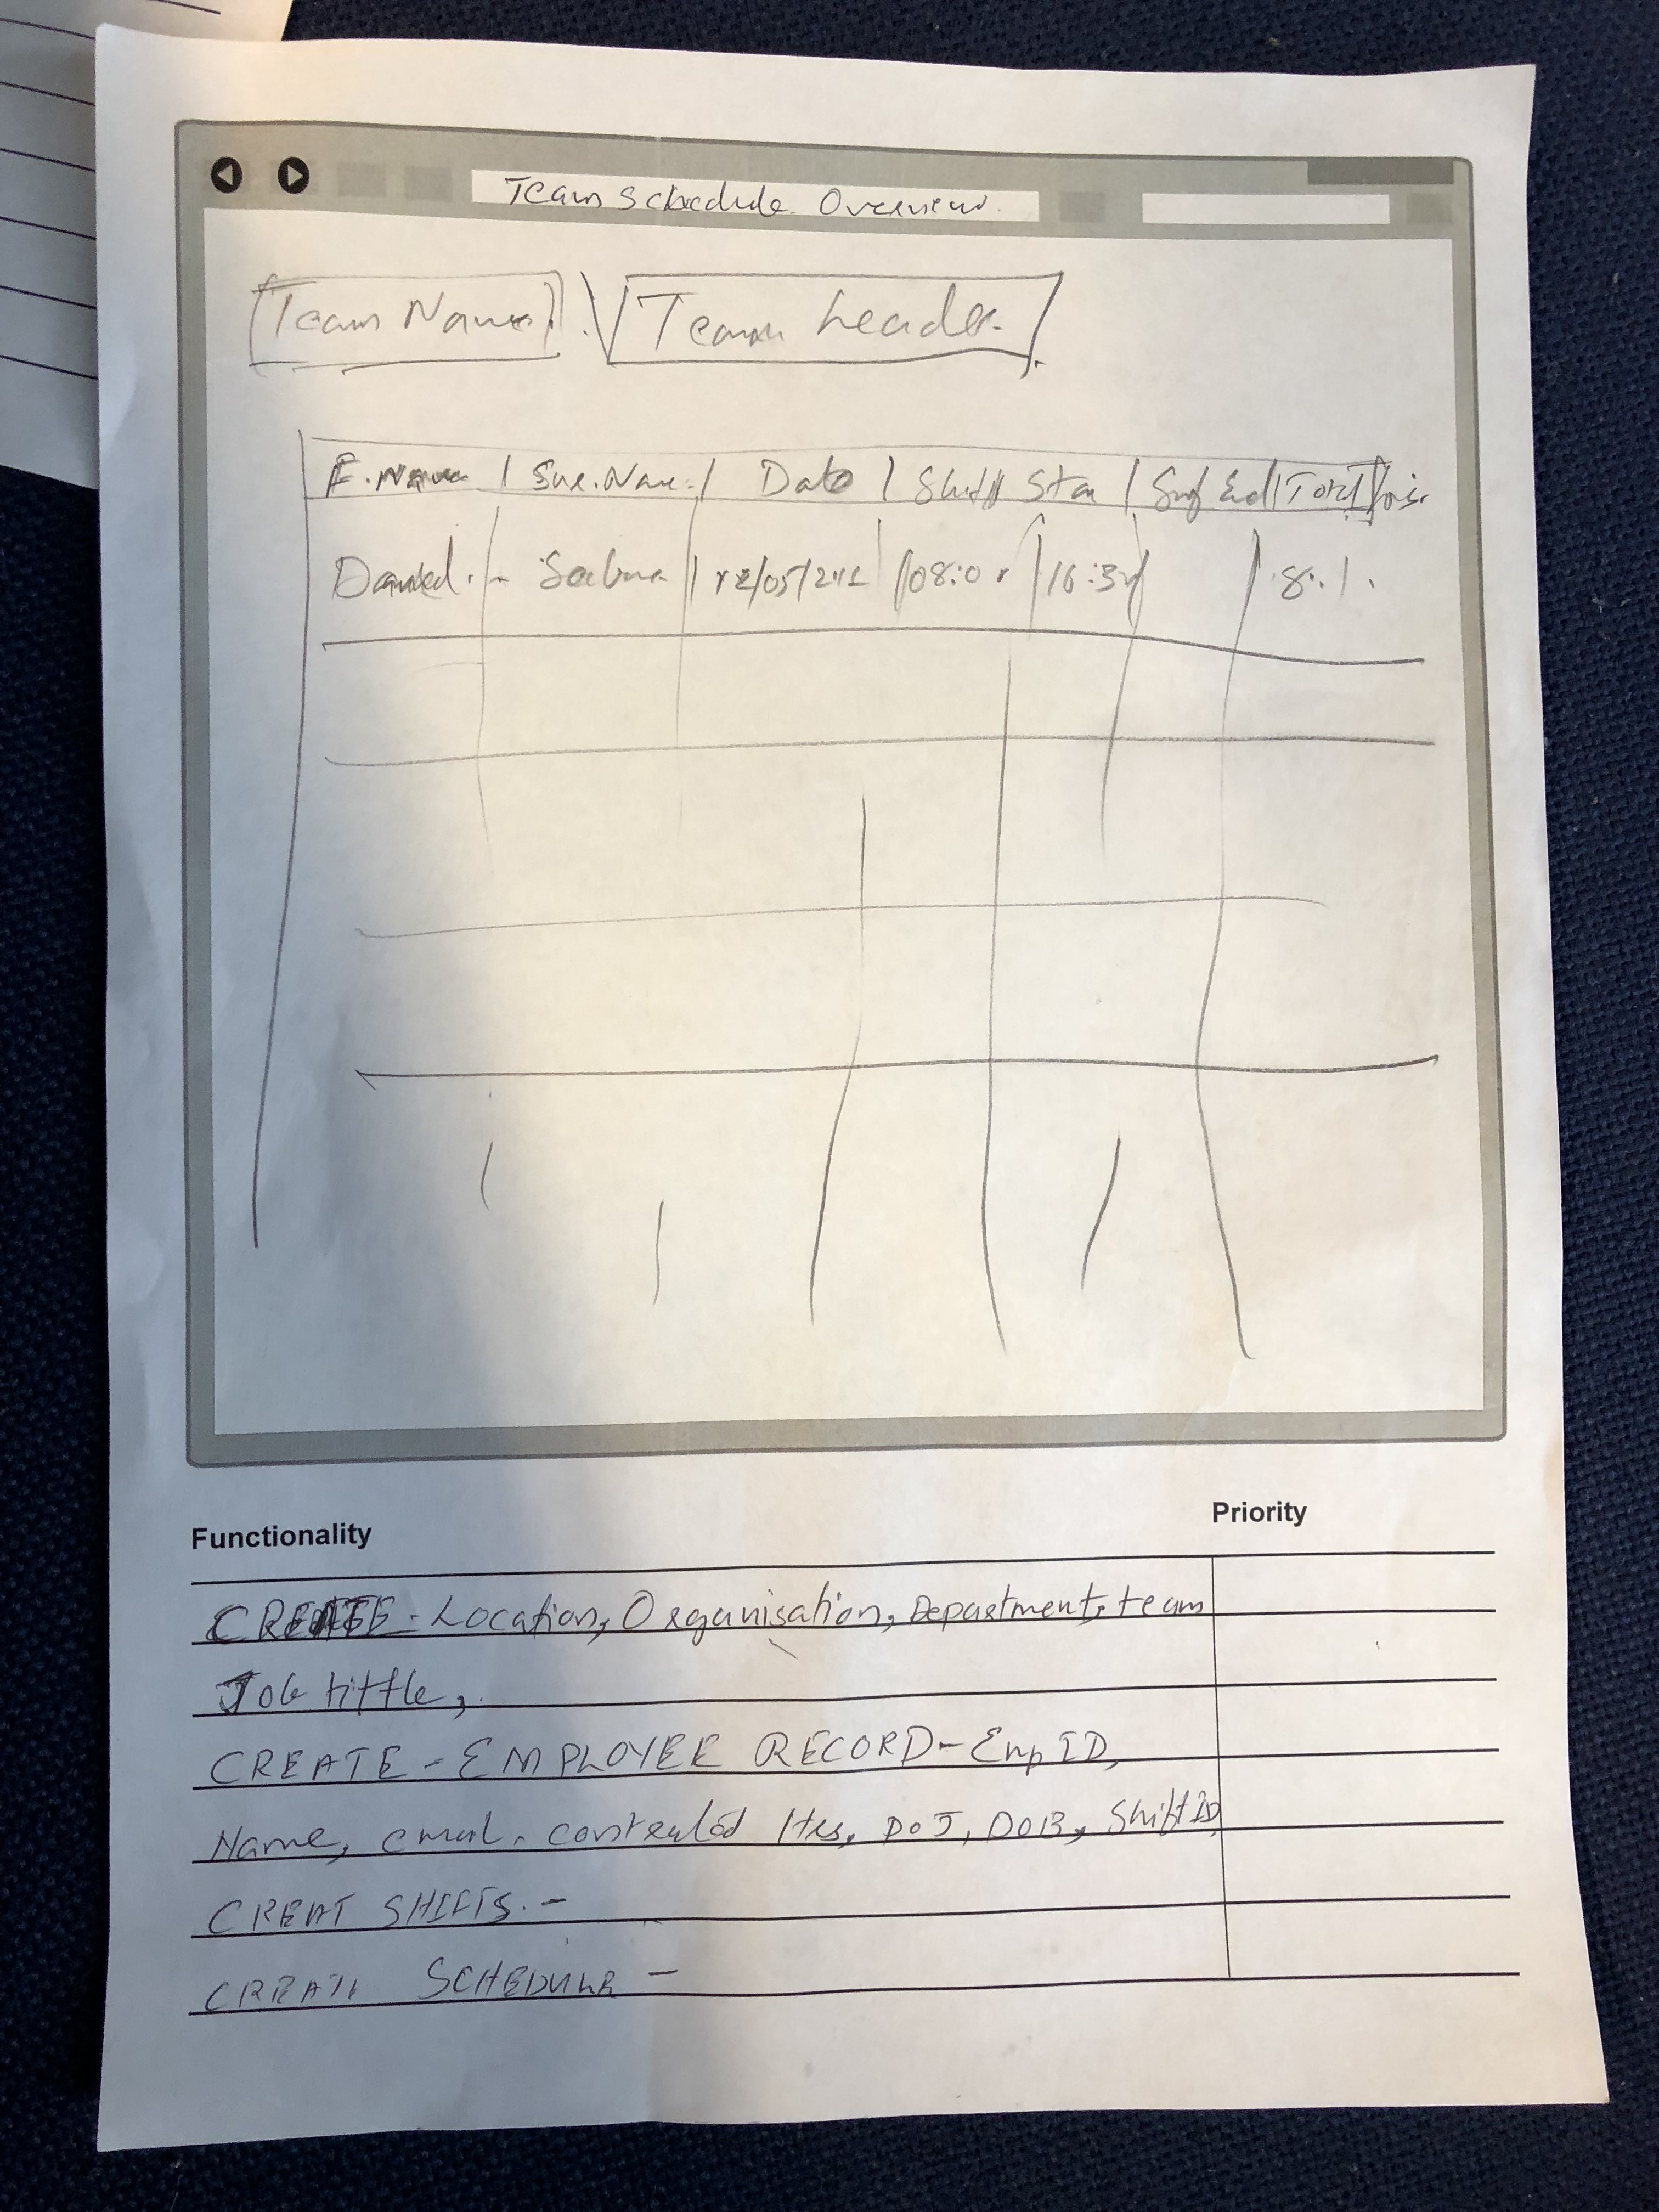 Team Schedule Overview.
Team Name Team Leader
F. Name | Sur. Name | Date | Shift Star | End | Total
08:0 16:3
Functionality Priority
CREATE - Location, Organisation, Department, team
Job tittle,
CREATE - EMPLOYEE RECORD - Emp ID,
Name, email. Hrs, DOJ, DOB, Shift ID,
CREAT SHIFTS. -
CREATE SCHEDULE -